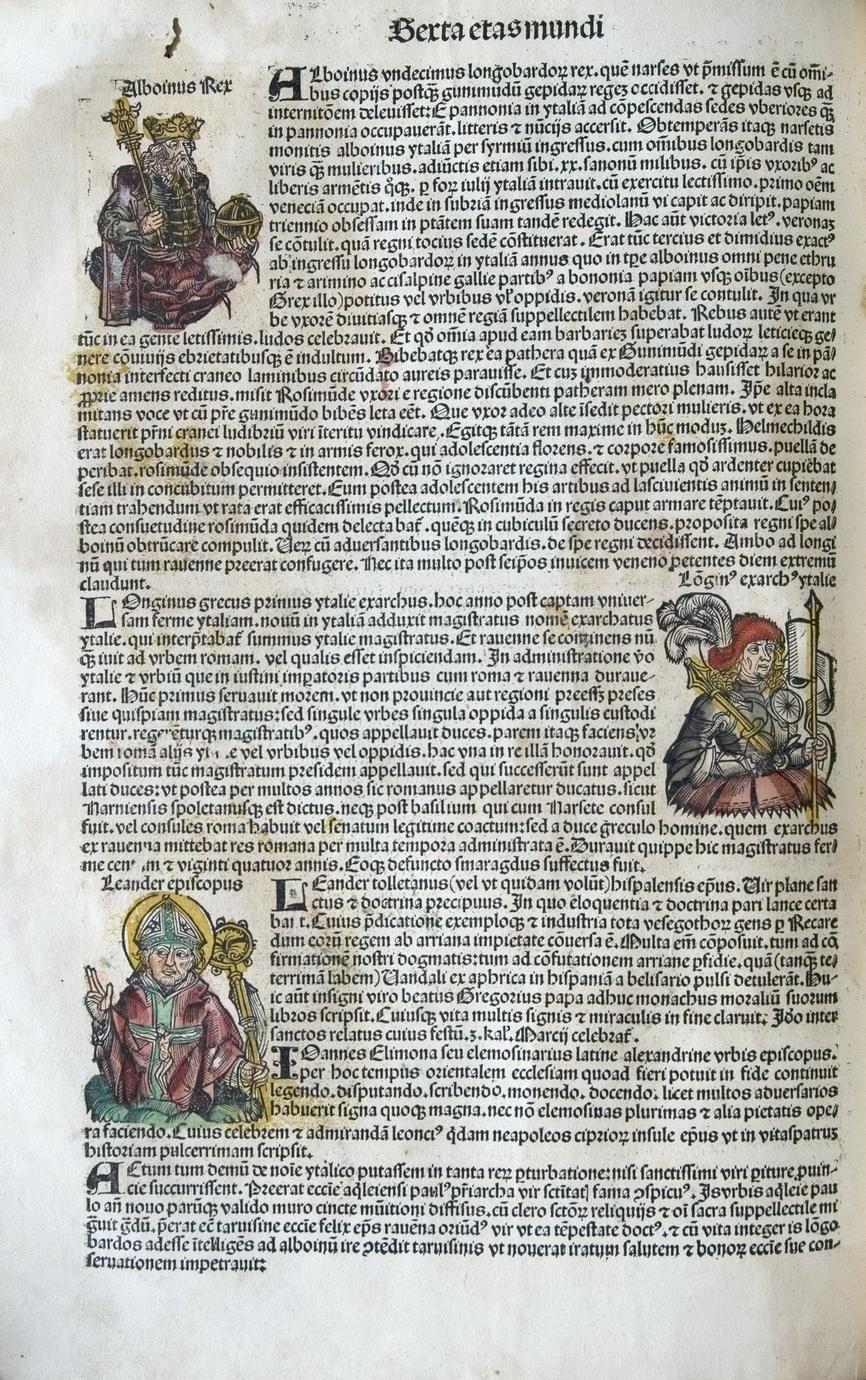 Sexta etas mundi
Alboinus Rex
ALboinus vndecimus longobardoꝝ rex. quē narses vt p̄missum ē cū om̄i-
bus copijs postqꝫ gunimudū gepidaꝝ regeꝫ occidisset. ⁊ gepidas vsqꝫ ad
internitōem deleuisset: E pannonia in ytaliā ad cōpescendas sedes vberiores qꝫ
in pannonia occupauerāt. litteris ⁊ nūcijs accersit. Obtemperās itaqꝫ narsetis
monitis alboinus ytaliā per syrmiū ingressus. cum om̄ibus longobardis tam
viris qꝫ mulieribus. adiūctis etiam sibi. xx. sanonū milibus. cū ip̄is vxoribꝰ ac
liberis armētis q̄qꝫ. ꝑ foꝝ iulij ytaliā intrauit. cū exercitu lectissimo. primo oēm
veneciā occupat. inde in subriā ingressus mediolanū vi capit ac diripit. papiam
triennio obsessam in ptātem suam tandē redegit. Hac aūt victoria letꝰ. veronaꝫ
se cōtulit. quā regni tocius sedē cōstituerat. Erat tūc tercius et dimidius exactꝰ
ab ingressu longobardoꝝ in ytaliā annus quo in tp̄e alboinus omni pene ethru
ria ⁊ arimino ac cisalpine gallie partibꝰ a bononia papiam vsqꝫ oībus (excepto
Grex illo) potitus vel vrbibus vl' oppidis. veronā igitur se contulit. In qua vr
be vxorē diuitiasqꝫ ⁊ omnē regiā suppellectilem habebat. Rebus autē vt erant
tūc in ea gente letissimis. ludos celebraut. Et qd̄ om̄ia apud eam barbarieꝫ superabat ludoꝝ leticieqꝫ ge/
nere cōuiuijs ebrietatibusqꝫ ē indultum. Bibebatqꝫ rex ea pathera quā ex Gunimūdi gepidaꝝ a se in pā/
nonia interfecti craneo laminibus circūdato aureis parauisse. Et cuꝫ immoderatius hausisset hilarior ac
ꝓprie amens reditus. misit Rosimūde vxori e regione discūbenti patheram mero plenam. Ip̄e alta incla
mitans voce vt cū pr̄e gunimūdo bibēs leta eēt. Que vox adeo alte īsedit pectori mulieris. vt ex ea hora
statuerit pr̄ni cranei ludibriū viri īteritu vindicare. Egitqꝫ tātā rem maxime in hūc moduꝫ. Helmechildis
erat longobardus ⁊ nobilis ⁊ in armis ferox. qui adolescentia florens. ⁊ corpore famosissimus. puellā de
peribat. rosimūde obsequio insistentem. Qd̄ cū nō ignoraret regina effecit. vt puella qd̄ ardenter cupiebat
sese illi in concubitum permitteret. Eum postea adolescentem his artibus ad lasciuientis animū in senten/
tiam trahendum vt rata erat efficacissimis pellectum. Rosimūda in regis caput armare tēptauit. Cuiꝰ po/
stea consuetudine rosimūda quidem delectabat̄. quēqꝫ in cubiculū secreto ducens. proposita regni spe al/
boinū obtrūcare compulit. Ueꝝ cū aduersantibus longobardis. de spe regni decidissent. Ambo ad longi
nū qui tum rauenne preerat confugere. Nec ita multo post seip̄os inuicem veneno petentes diem extremū
claudunt.
Lōginꝰ exarchꝰ ytalie
LOnginus grecus primus ytalie exarchus. hoc anno post captam vniuer-
sam ferme ytaliam. nouū in ytaliā adduxit magistratus nomē exarchatus
ytalie. qui interp̄tabat̄ summus ytalie magistratus. Et rauenne se continens nū
qꝫ iuit ad vrbem romam. vel qualis esset inspiciendam. In administratione v̄o
ytalie ⁊ vrbiū que in iustini imp̄atoris partibus cum roma ⁊ rauenna duraue-
rant. Hūc primus seruauit morem. vt non prouincie aut regioni preesset preses
siue quispiam magistratus: sed singule vrbes singula oppida a singulis custodi
rentur. regerēturqꝫ magistratibꝰ. quos appellauit duces. parem itaqꝫ faciens vr
bem romā alijs vel vrbibus vel oppidis. hac vna in re illā honorauit. qd̄
impositum tūc magistratum presidem appellauit. sed qui successerūt sunt appel
lati duces: vt postea per multos annos sic romanus appellaretur ducatus. sicut
Narniensis spoletanusqꝫ est dictus. neqꝫ post basilium qui cum Narsete consul
fuit. vel consules roma habuit vel senatum legitime coactum: sed a duce greculo homine. quem exarchus
ex rauenna mittebat res romana per multa tempora administrata ē. Durauit quippe hic magistratus fer/
me centum ⁊ viginti quatuor annis. Eoqꝫ defuncto smaragdus suffectus fuit.
Leander episcopus
LEander tolletanus (vel vt quidam volūt) hispalensis ep̄us. Uir plane san
ctus ⁊ doctrina precipuus. In quo eloquentia ⁊ doctrina pari lance certa
bat. Cuius p̄dicatione exemploqꝫ ⁊ industria tota vesegothoꝝ gens ꝑ Recare
dum eoꝝ regem ab arriana impietate cōuersa ē. Multa em̄ cōposuit. tum ad cō
firmationē nostri dogmatis: tum ad cōfutationem arriane ꝑfidie. quā (tanqꝫ te/
terrimā labem) Uandali ex aphrica in hispaniā a belisario pulsi detulerāt. Hu-
ic aūt insigni viro beatus Gregorius papa adhuc monachus moraliū suorum
libros scripsit. Cuiusqꝫ vita multis signis ⁊ miraculis in fine claruit. Ido inter
sanctos relatus cuius festū. 3. kal'. Marcij celebrat̄.
IOannes Elimona seu elemosinarius latine alexandrine vrbis episcopus.
per hoc tempus orientalem ecclesiam quoad fieri potuit in fide continuit
legendo. disputando. scribendo. monendo. docendo. licet multos aduersarios
habuerit signa quoqꝫ magna. nec nō elemosinas plurimas ⁊ alia pietatis ope/
ra faciendo. Cuius celebrem ⁊ admirandā leonciꝰ qdam neapoleos ciprioꝝ insule ep̄us vt in vitaspatruꝫ
historiam pulcerrimam scripsit.
ACtum tum demū de noīe ytalico putassem in tanta reꝝ ꝑturbatione: nisi sanctissimi viri ꝑiture ꝓuin-
cie succurrissent. Preerat eccīe aqleiensi paulꝰ pr̄iarcha vir sctītat̄ fama ꝯspicuꝰ. Is vrbis aqleie pau
lo añ nouo parūqꝫ valido muro cincte mūitioni diffisus. cū clero sctōꝝ reliquijs ⁊ oī sacra suppellectile mi
gꝛuit gdū. p̄erat eē taruisine eccīe felix ep̄s rauēna oriūdꝰ vir vt ea tēpestate doctꝰ. ⁊ cū vita integer is lōgo
bardos adesse ītelligēs ad alboinū ire ꝓtēdit taruisinis vt nouerat iratum salutem ⁊ bonoꝝ eccīe sue con-
seruationem impetrauit: